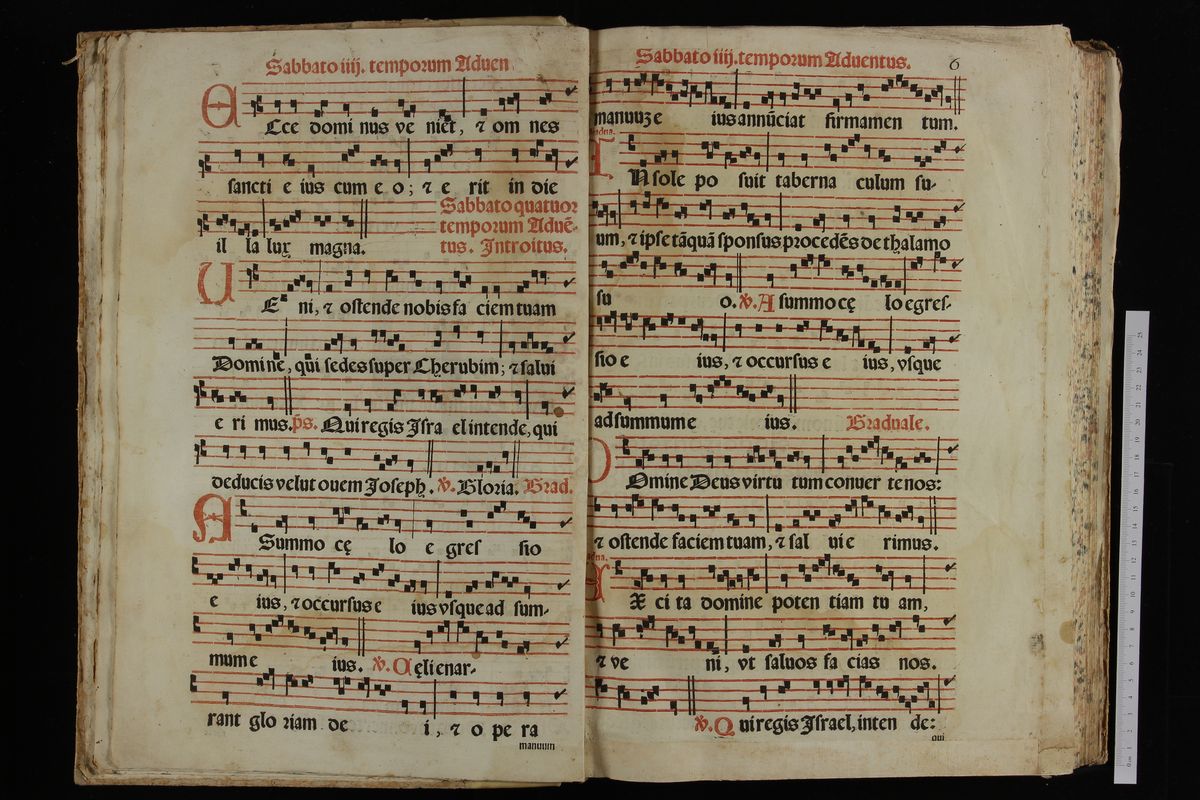 Sabbato iiij. temporum Aduen
ECce domi nus ve niet, ⁊ om nes
sancti e ius cum e o; ⁊ e rit in die
il la lux magna.
Sabbato quatuor
temporum Aduē-
tus. Introitus.
VE ni, ⁊ ostende nobis fa ciem tuam
Domine, qui sedes super Cherubim; ⁊ salui
e ri mus. ps. Qui regis Isra el intende, qui
deducis velut ouem Joseph. ℣. Gloria. Grad.
A Summo cę lo e gres sio
e ius, ⁊ occursus e ius vsque ad sum-
mum e ius. ℣. Cęli enar-
rant glo riam de i, ⁊ o pe ra
manuum
Sabbato iiij. temporum Aduentus.
6
manuuʒ e ius annūciat firmamen tum.
IN sole po suit taberna culum su-
um, ⁊ ipse tāquā sponsus procedēs de thalamo
su o. ℣. A summo cę lo egres-
sio e ius, ⁊ occursus e ius, vsque
ad summum e ius. Graduale.
DOmine Deus virtu tum conuer te nos:
⁊ ostende faciem tuam, ⁊ sal ui e rimus.
EX ci ta domine poten tiam tu am,
⁊ ve ni, vt saluos fa cias nos.
℣. Qui regis Israel, inten de:
qui